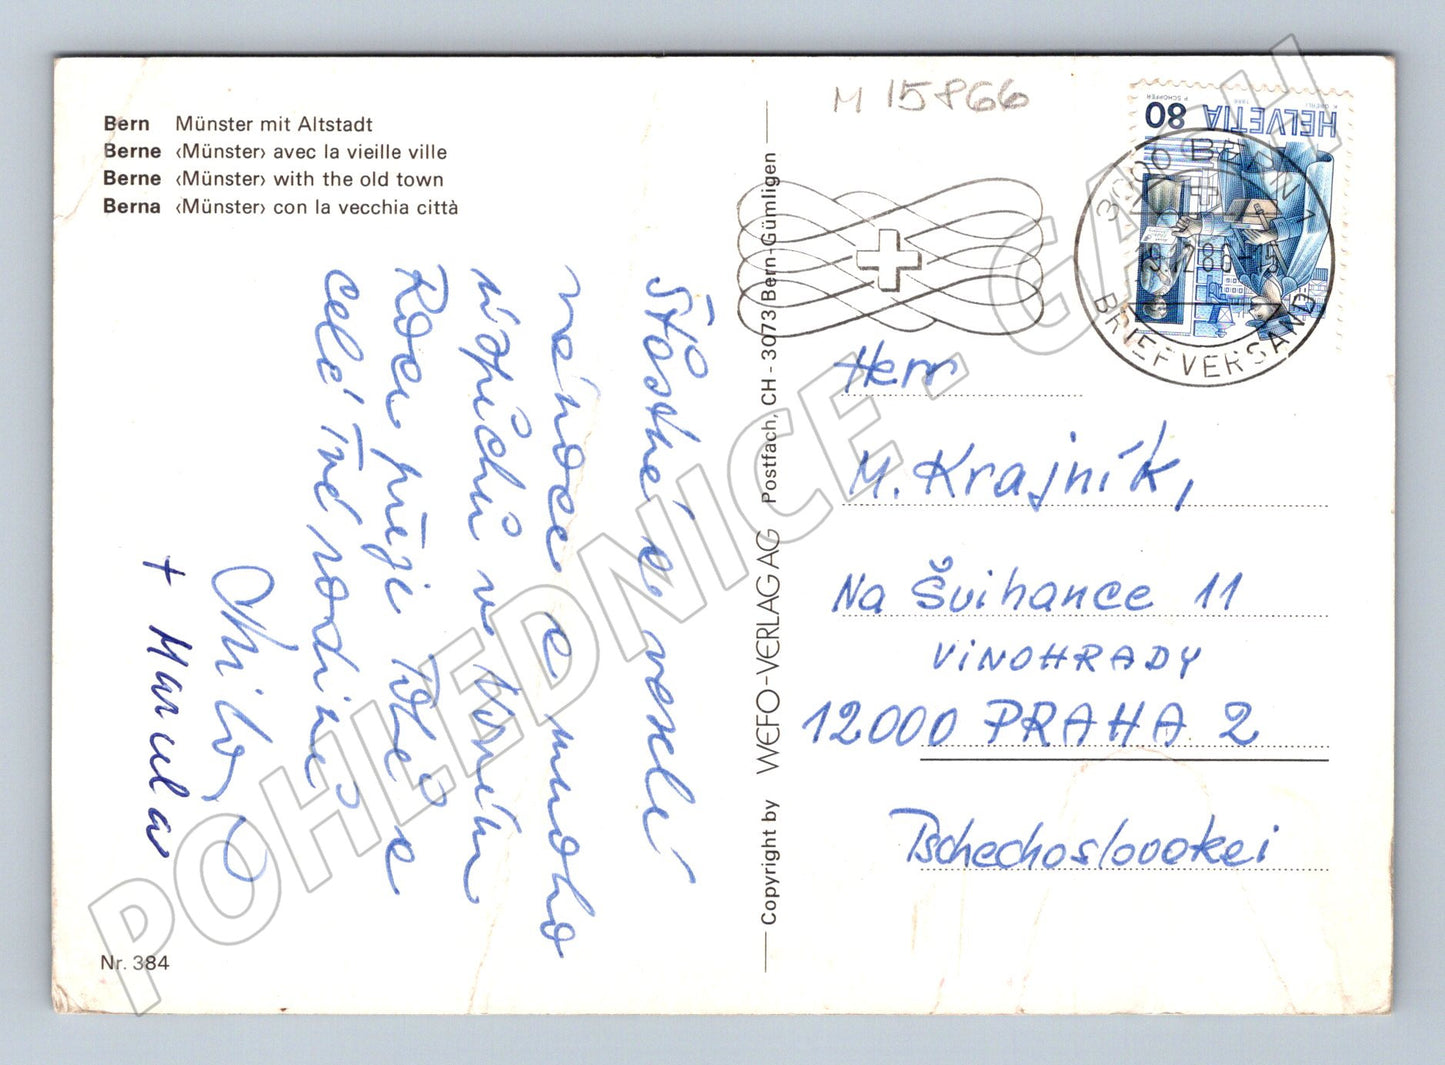 Bern Münster mit Altstadt
Berne ‹Münster› avec la vieille ville
Berne ‹Münster› with the old town
Berna ‹Münster› con la vecchia città
Nr. 384
Šťastné a veselé
vánoce a mnoho
úspěchů v Novém
Roce přeji Tobě a
celé Tvé rodině
+ Marula
Copyright by WEFO-VERLAG AG Postfach, CH - 3073 Bern-Gümligen
M 15866
HELVETIA 80
3000 BERN 1
BRIEFVERSAND
Herr
M. Krajník,
Na Švihance 11
VINOHRADY
12000 PRAHA 2
Tschechoslovakei
POHLEDNICE - GASH